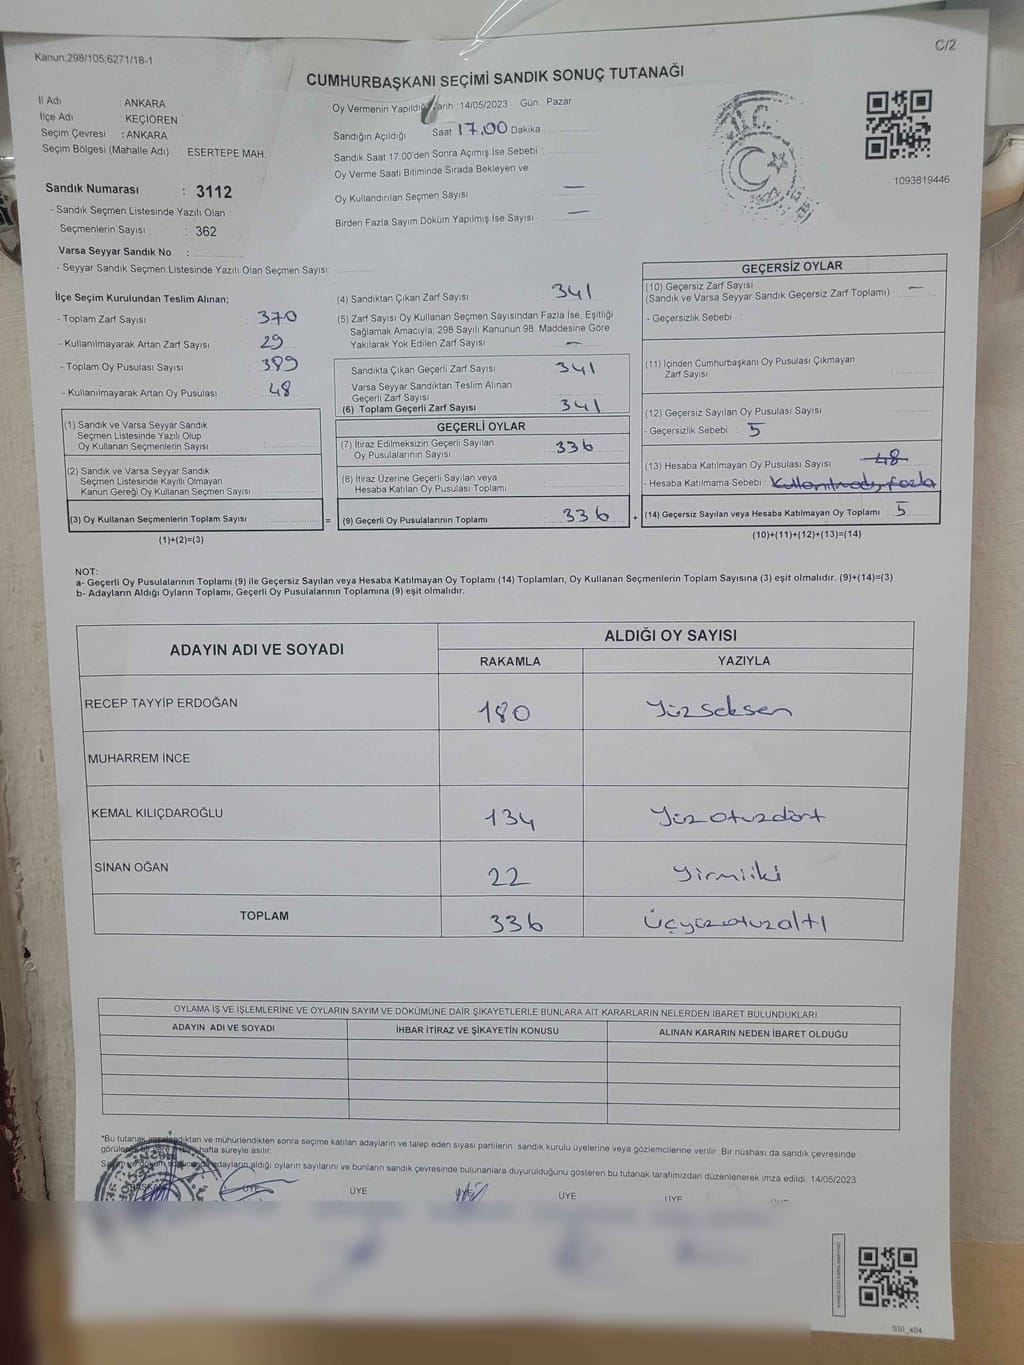 Kanun:298/105;6271/18-1
C/2
CUMHURBAŞKANI SEÇİMİ SANDIK SONUÇ TUTANAĞI
İl Adı : ANKARA
İlçe Adı : KEÇİÖREN
Seçim Çevresi : ANKARA
Seçim Bölgesi (Mahalle Adı) : ESERTEPE MAH.
Sandık Numarası : 3112
- Sandık Seçmen Listesinde Yazılı Olan
Seçmenlerin Sayısı : 362
Varsa Seyyar Sandık No :
- Seyyar Sandık Seçmen Listesinde Yazılı Olan Seçmen Sayısı:
Oy Vermenin Yapıldığı Tarih : 14/05/2023 Gün : Pazar
Sandığın Açıldığı Saat 17.00 Dakika
Sandık Saat 17:00'den Sonra Açımış İse Sebebi :
Oy Verme Saati Bitiminde Sırada Bekleyen ve
Oy Kullandırılan Seçmen Sayısı —
Birden Fazla Sayım Döküm Yapılmış İse Sayısı —
T.C.
1093819446
İlçe Seçim Kurulundan Teslim Alınan;
- Toplam Zarf Sayısı : 370
- Kullanılmayarak Artan Zarf Sayısı : 29
- Toplam Oy Pusulası Sayısı : 389
- Kullanılmayarak Artan Oy Pusulası : 48
(1) Sandık ve Varsa Seyyar Sandık
Seçmen Listesinde Yazılı Olup
Oy Kullanan Seçmenlerin Sayısı :
(2) Sandık ve Varsa Seyyar Sandık
Seçmen Listesinde Kayıtlı Olmayan
Kanun Gereği Oy Kullanan Seçmen Sayısı :
(3) Oy Kullanan Seçmenlerin Toplam Sayısı : =
(1)+(2)=(3)
(4) Sandıktan Çıkan Zarf Sayısı : 341
(5) Zarf Sayısı Oy Kullanan Seçmen Sayısından Fazla İse, Eşitliği
Sağlamak Amacıyla; 298 Sayılı Kanunun 98. Maddesine Göre
Yakılarak Yok Edilen Zarf Sayısı : —
Sandıkta Çıkan Geçerli Zarf Sayısı : 341
Varsa Seyyar Sandıktan Teslim Alınan
Geçerli Zarf Sayısı :
(6) Toplam Geçerli Zarf Sayısı : 341
GEÇERLİ OYLAR
(7) İtiraz Edilmeksizin Geçerli Sayılan
Oy Pusulalarının Sayısı : 336
(8) İtiraz Üzerine Geçerli Sayılan veya
Hesaba Katılan Oy Pusulası Toplamı :
(9) Geçerli Oy Pusulalarının Toplamı : 336 +
GEÇERSİZ OYLAR
(10) Geçersiz Zarf Sayısı
(Sandık ve Varsa Seyyar Sandık Geçersiz Zarf Toplamı) : —
- Geçersizlik Sebebi :
(11) İçinden Cumhurbaşkanı Oy Pusulası Çıkmayan
Zarf Sayısı :
(12) Geçersiz Sayılan Oy Pusulası Sayısı :
- Geçersizlik Sebebi : 5
(13) Hesaba Katılmayan Oy Pusulası Sayısı : 48
- Hesaba Katılmama Sebebi :
(14) Geçersiz Sayılan veya Hesaba Katılmayan Oy Toplamı : 5
(10)+(11)+(12)+(13)=(14)
NOT:
a- Geçerli Oy Pusulalarının Toplamı (9) ile Geçersiz Sayılan veya Hesaba Katılmayan Oy Toplamı (14) Toplamları, Oy Kullanan Seçmenlerin Toplam Sayısına (3) eşit olmalıdır. (9)+(14)=(3)
b- Adayların Aldığı Oyların Toplamı, Geçerli Oy Pusulalarının Toplamına (9) eşit olmalıdır.
ADAYIN ADI VE SOYADI
ALDIĞI OY SAYISI
RAKAMLA YAZIYLA
RECEP TAYYİP ERDOĞAN 180 Yüzseksen
MUHARREM İNCE
KEMAL KILIÇDAROĞLU 134 Yüzotuzdört
SİNAN OĞAN 22 Yirmiiki
TOPLAM 336 Üçyüzotuzaltı
OYLAMA İŞ VE İŞLEMLERİNE VE OYLARIN SAYIM VE DÖKÜMÜNE DAİR ŞİKAYETLERLE BUNLARA AİT KARARLARIN NELERDEN İBARET BULUNDUKLARI
ADAYIN ADI VE SOYADI İHBAR İTİRAZ VE ŞİKAYETİN KONUSU ALINAN KARARIN NEDEN İBARET OLDUĞU
*Bu tutanak imzalandıktan ve mühürlendikten sonra seçime katılan adayların ve talep eden siyasi partilerin sandık kurulu üyelerine veya gözlemcilerine verilir. Bir nüshası da sandık çevresinde
hafta süreyle asılır.
adayların aldığı oyların sayılarını ve bunların sandık çevresinde bulunanlara duyurulduğunu gösteren bu tutanak tarafımızdan düzenlenerek imza edildi. 14/05/2023
BAŞKAN ÜYE ÜYE ÜYE ÜYE ÜYE
SSI_404